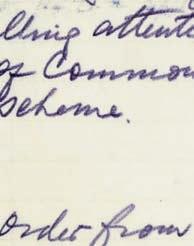 lling attent
of Common
scheme.
order from